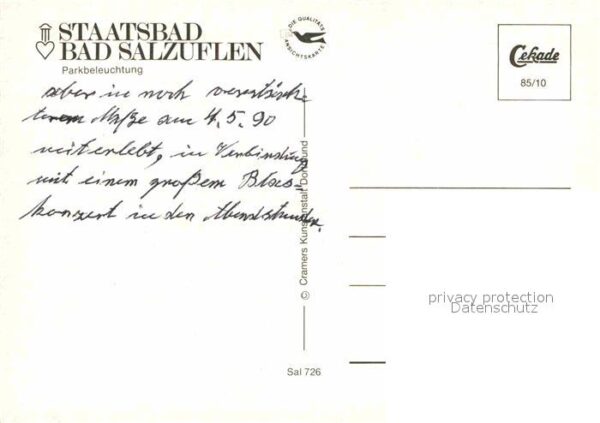 STAATSBAD
BAD SALZUFLEN
Parkbeleuchtung
DIE QUALITÄTS
ANSICHTSKARTE
Cekade
85/10
aber in noch verstärk-
terem Maße am 4.5.90
miterlebt, in Verbindung
mit einem großem Blas-
konzert in den Abendstunden.
© Cramers Kunstanstalt Dortmund
Sal 726
privacy protection
Datenschutz